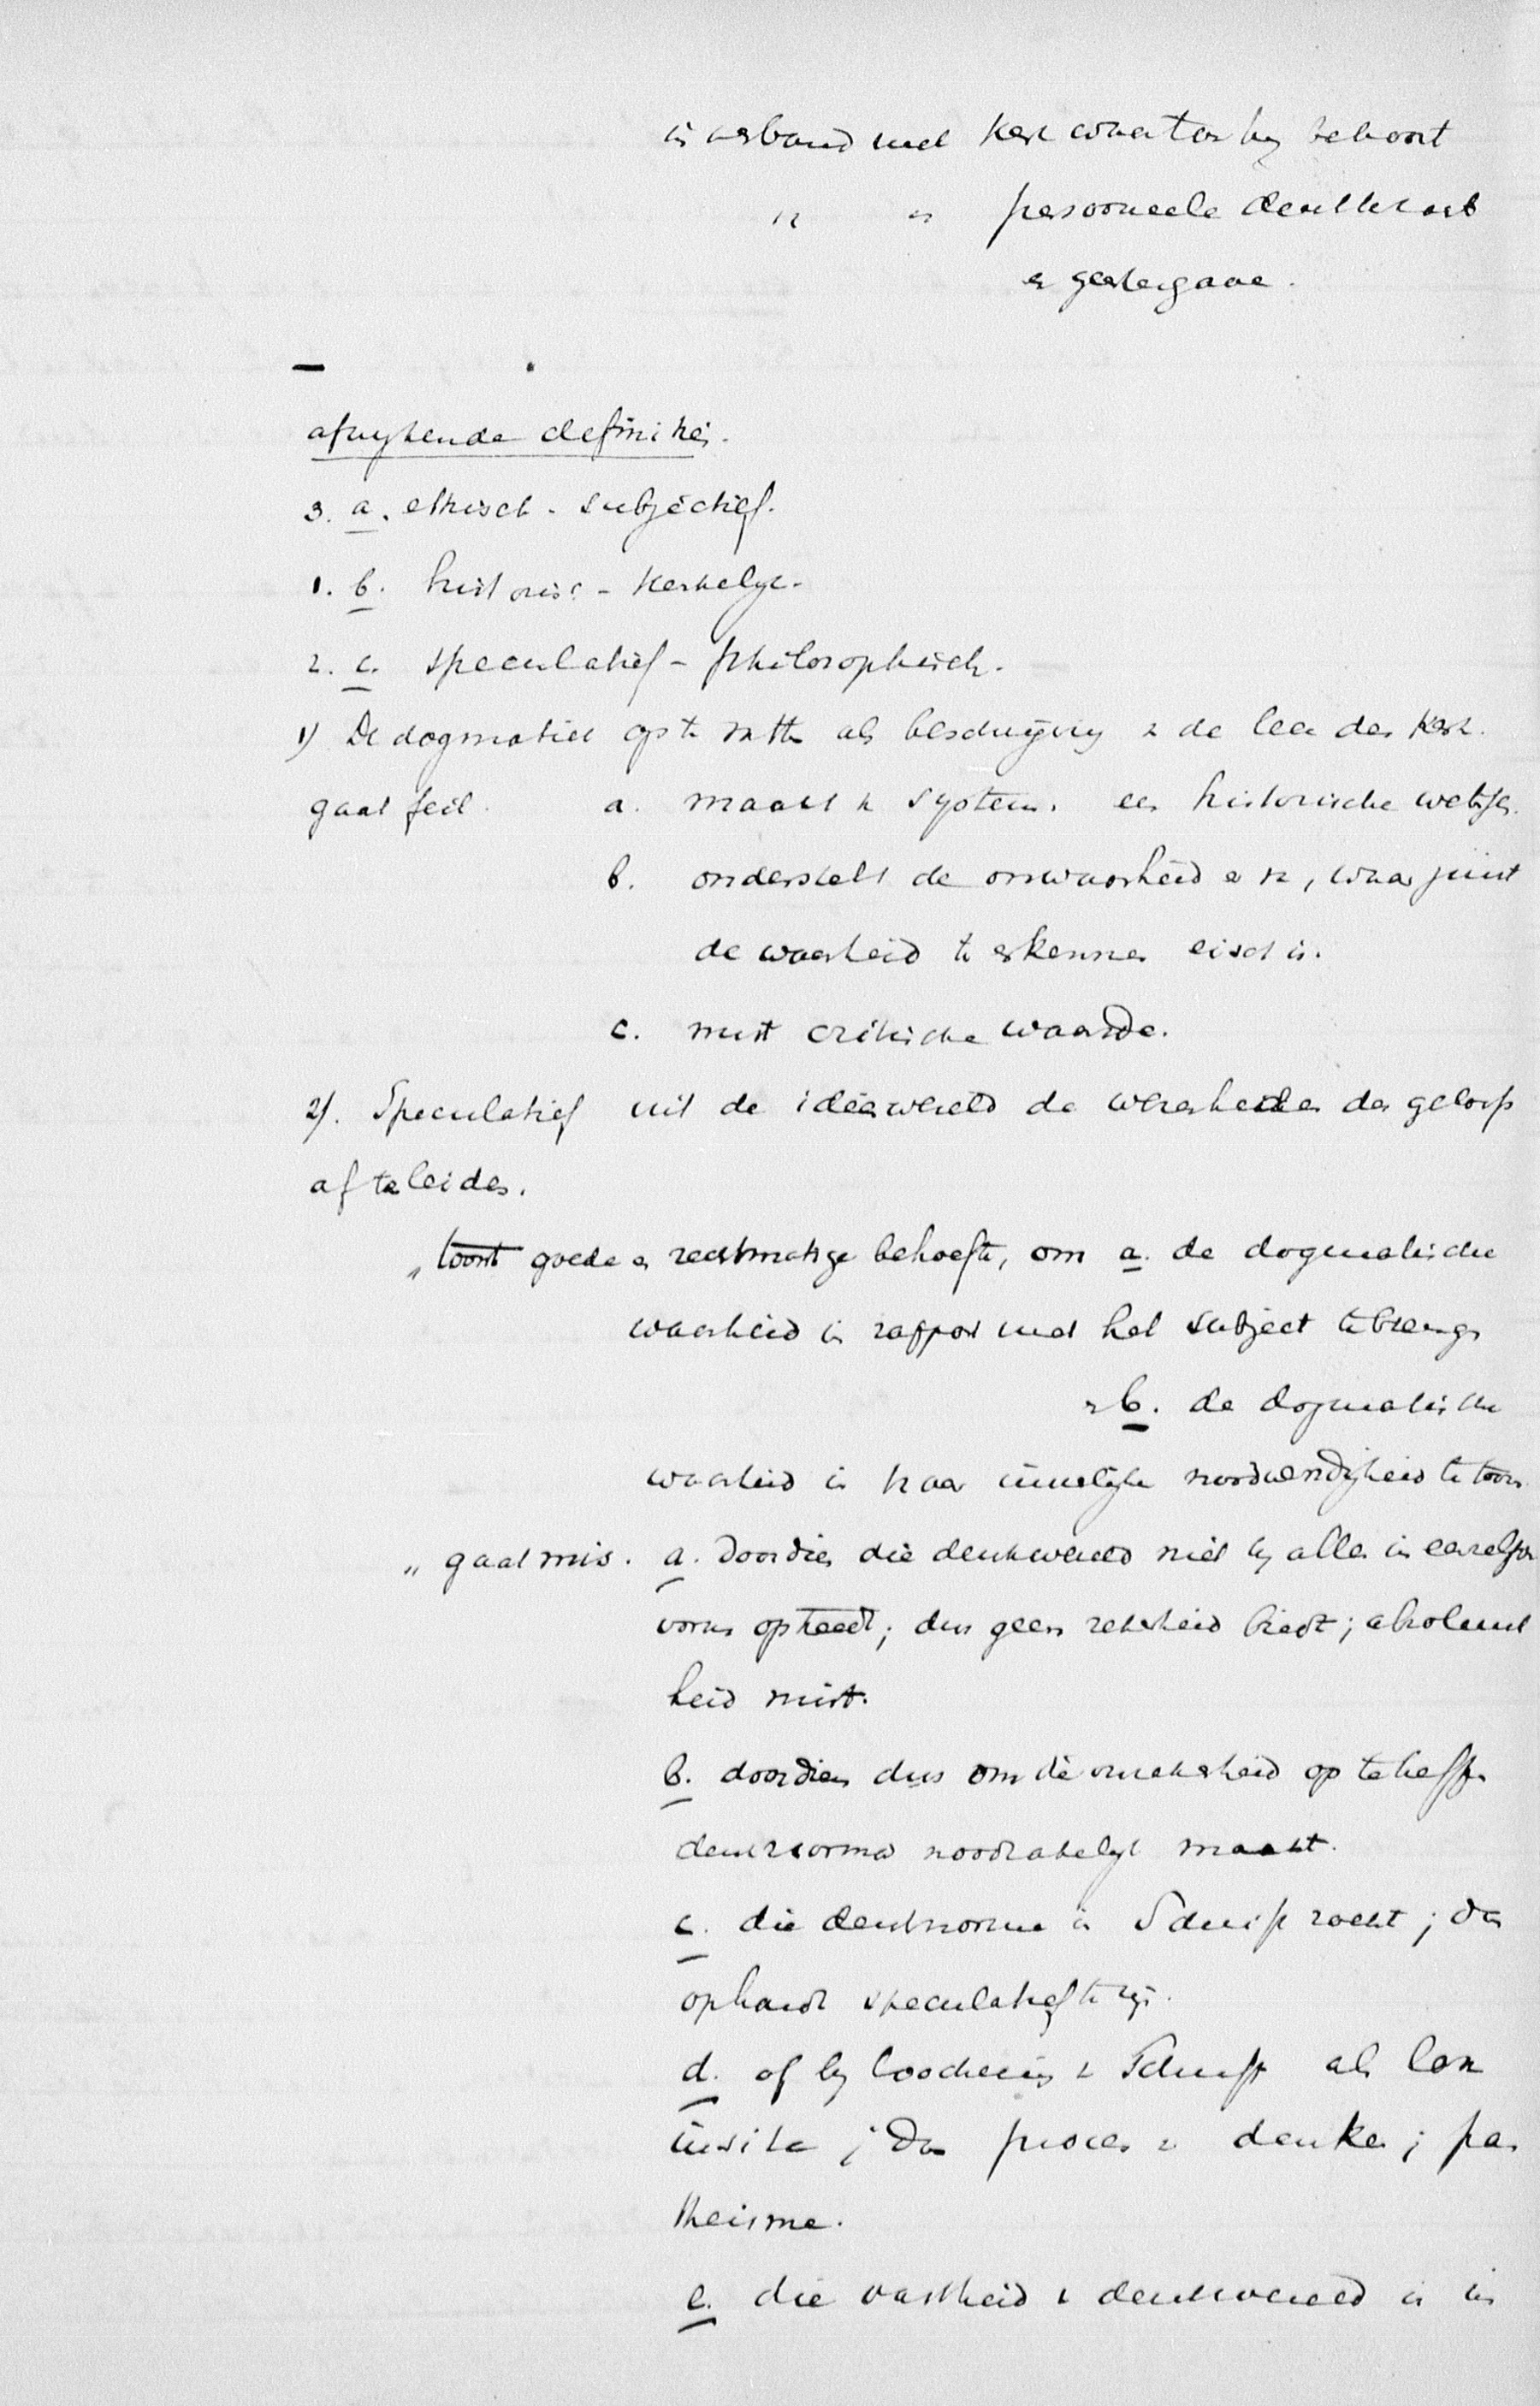 in verband met kerk waartoe hy behoort
" " persoonele denkkracht
en geestesgave.
—
afwykende definities.
3. a. ethisch - subjectief.
1. b. historisc - kerkelyk.
2. c. speculatief - philosophisch.
1) De dogmatiek op te vatten als beschrijving v de leer der kerk.
gaat feil. a. maakt h systeem. een historische wetsch.
b. onderstelt de onwaarheid er v, waar juist
de waarheid te erkennen eisch is.
c. mist critische waarde.
2). Speculatief uit de ideenwereld de waarheden des geloofs
af te leiden.
" toont goede en rechtmatige behoefte, om a. de dogmatische
waarheid in rapport met het subject te brengen
en b. de dogmatische
waarheid in haar innerlyke noodwendigheid te toonen
" gaat mis. a. doordien die denkwereld niet by allen in eenzelfden
vorm optreedt; dus geen zekerheid biedt; absoluut
heid mist.
b. doordien dus om die onzekerheid op te heffen
denknorma noodzakelyk maakt.
c. die denknorma in Schrift zoekt; dan
ophoudt speculatief te zyn.
d. of by loochening v Schrift als lex
insita; dan proces v denken; pan
theisme.
e. die vastheid v denkwereld is in